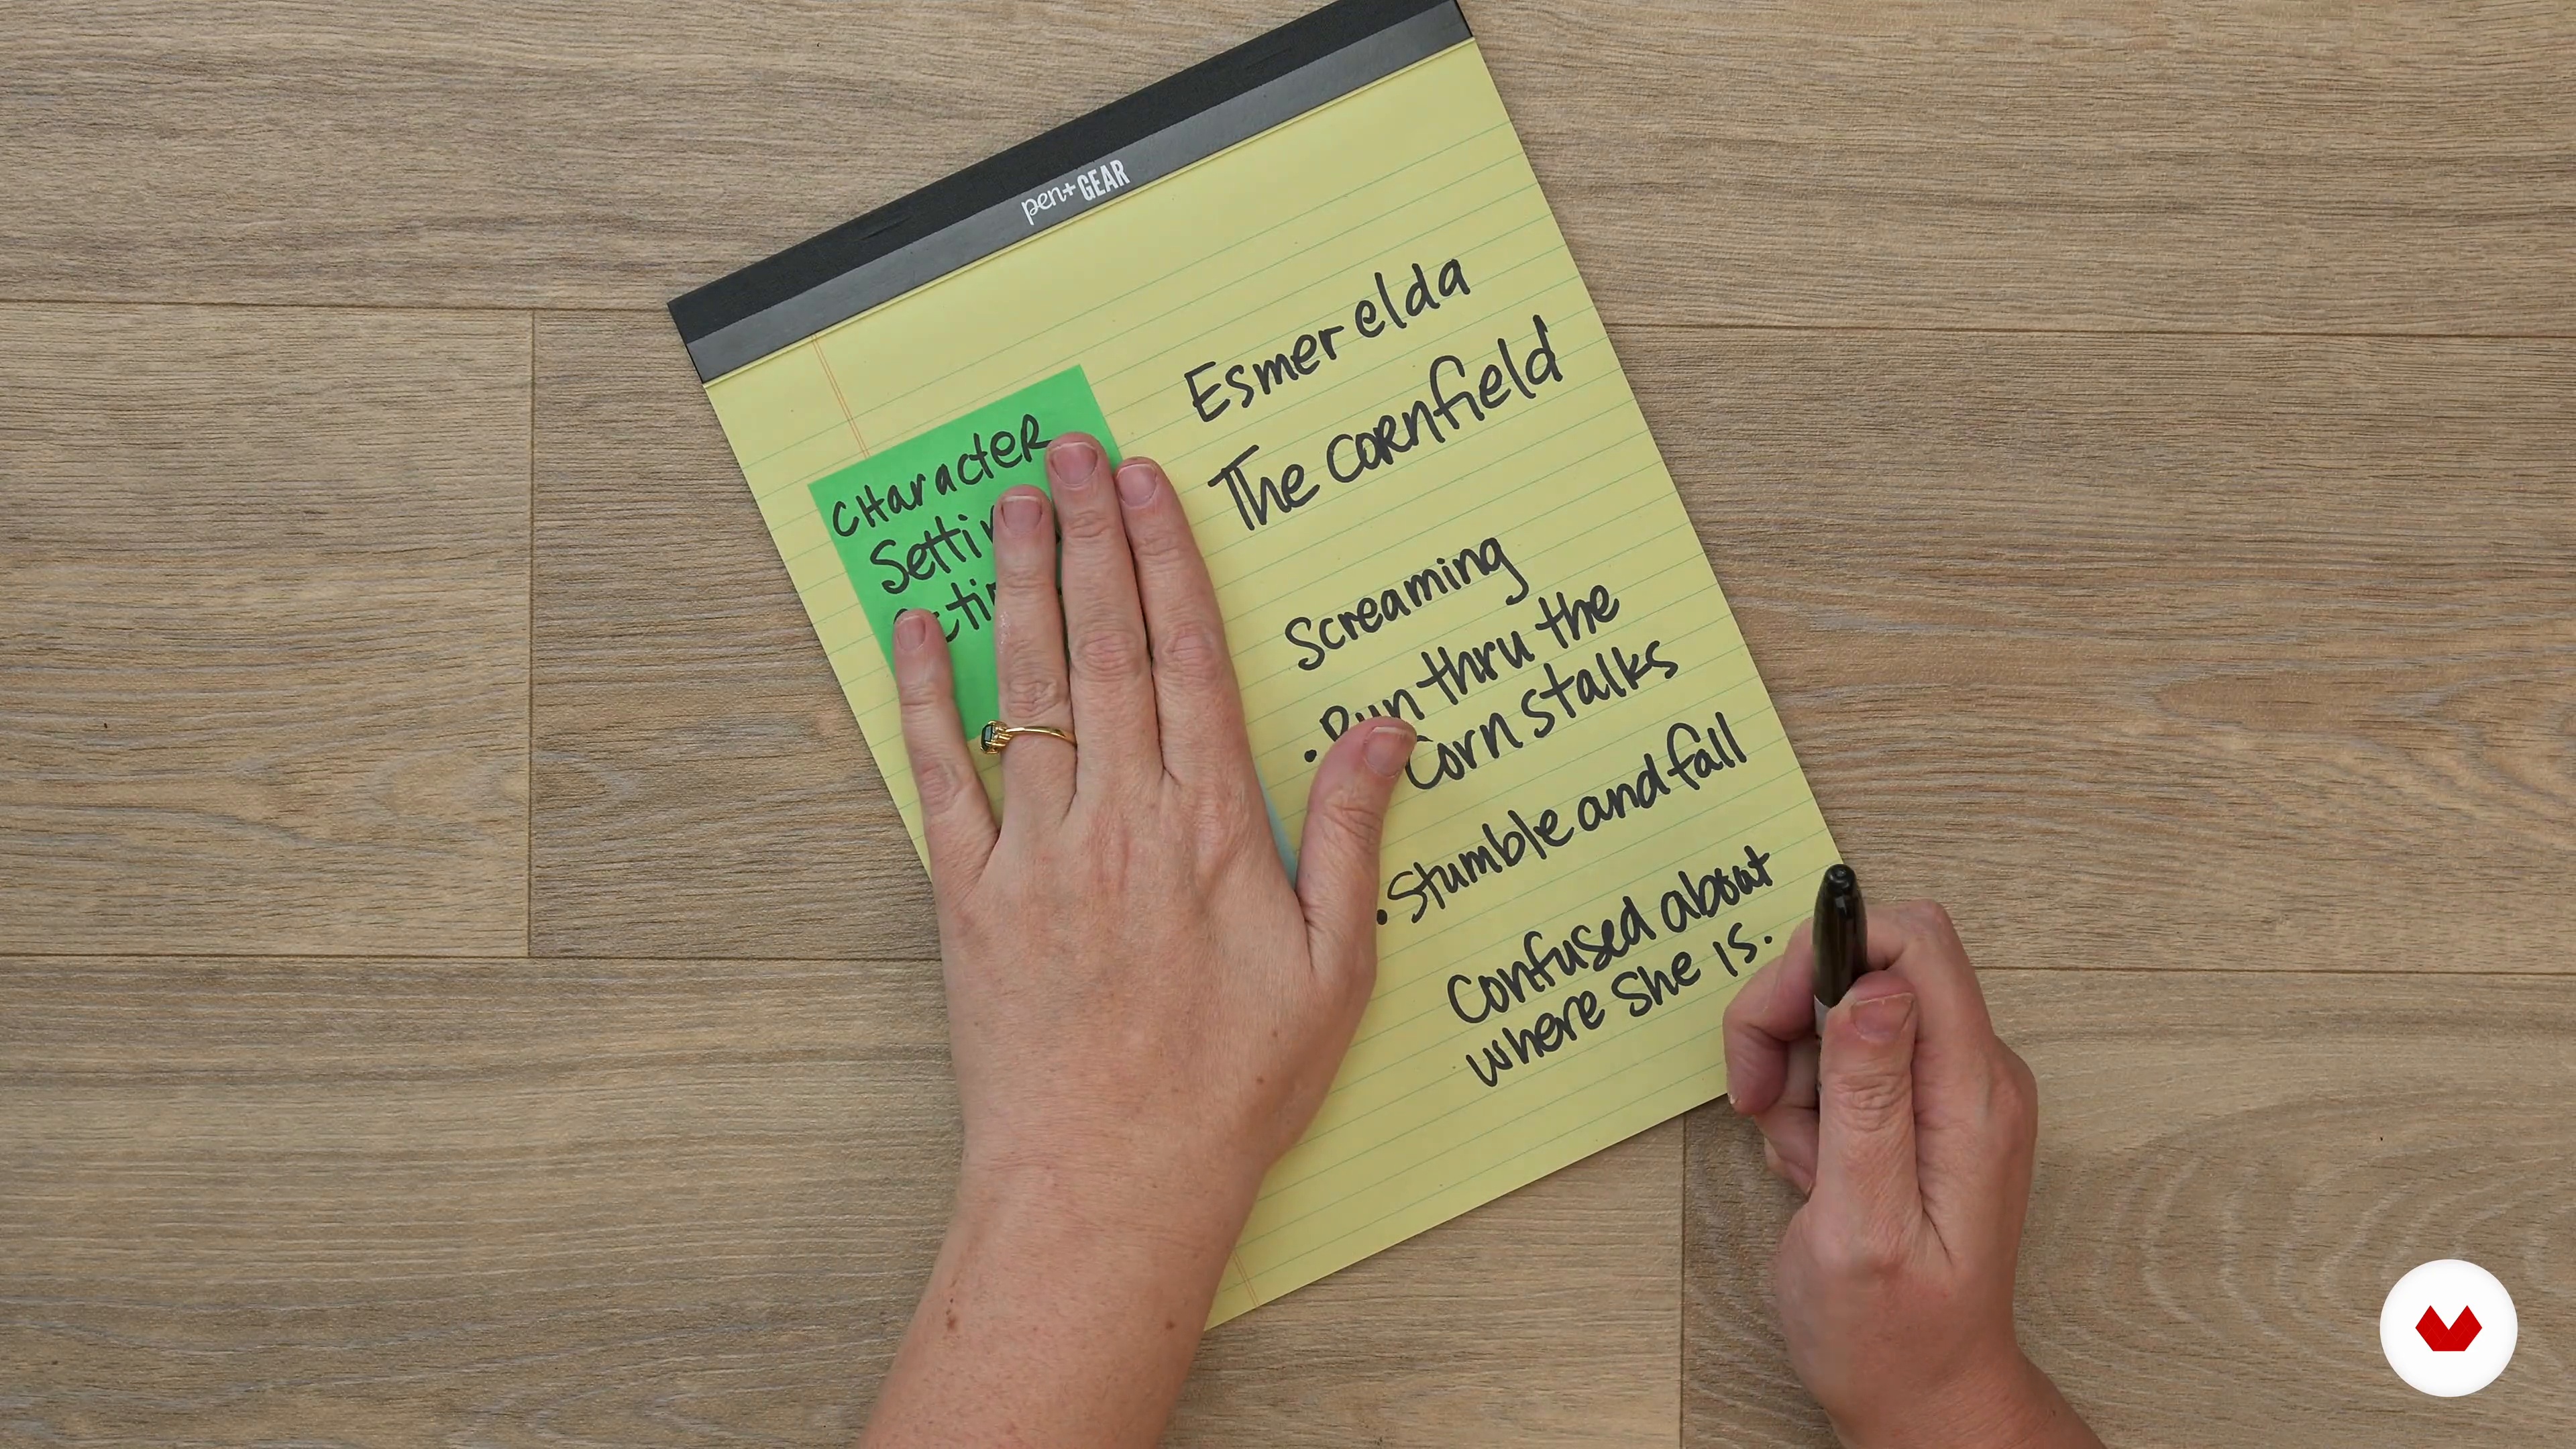 pen+GEAR
CHaracteR
Esmerelda
The cornfield
Screaming
• Run thru the
Corn stalks
• Stumble and fall
Confused about
where She is.